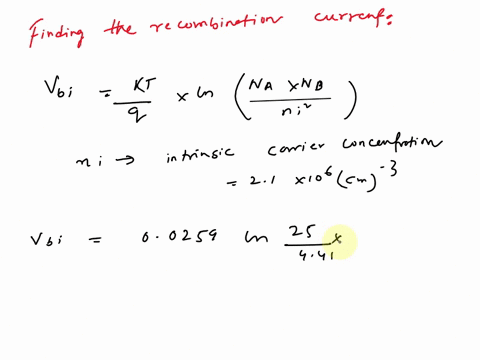 Finding the recombination current:
Vbi = KT/q × ln (NA × NB / ni²)
ni → intrinsic carrier concentration
= 2.1 × 10⁶ (cm)⁻³
Vbi = 0.0259 ln 25/4.41 ×